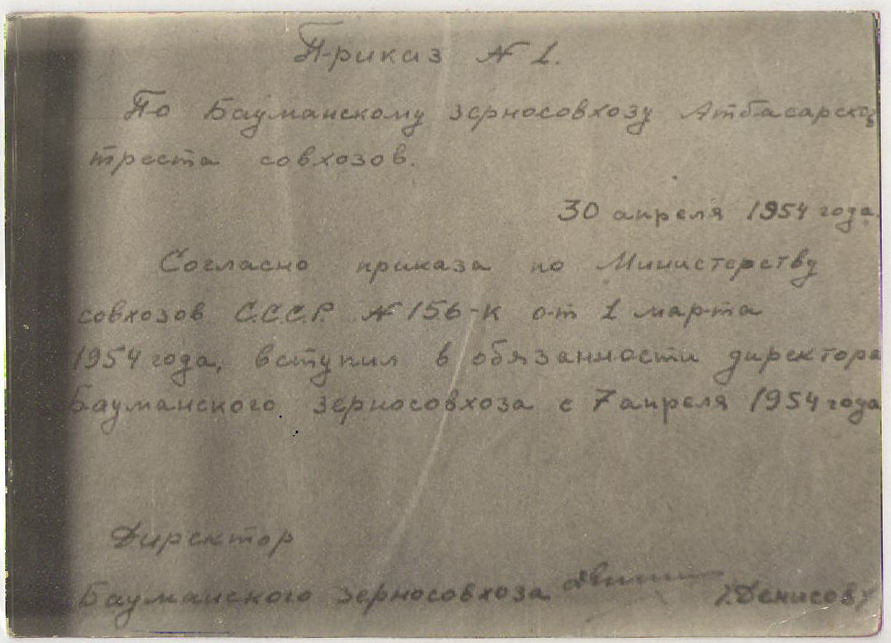 Приказ № 1.
По Бауманскому зерносовхозу Атбасарског
треста совхозов.
30 апреля 1954 года.
Согласно приказа по Министерству
совхозов С.С.С.Р. № 156-к от 1 марта
1954 года, вступил в обязанности директора
Бауманского зерносовхоза с 7 апреля 1954 года
Директор
Бауманского зерносовхоза